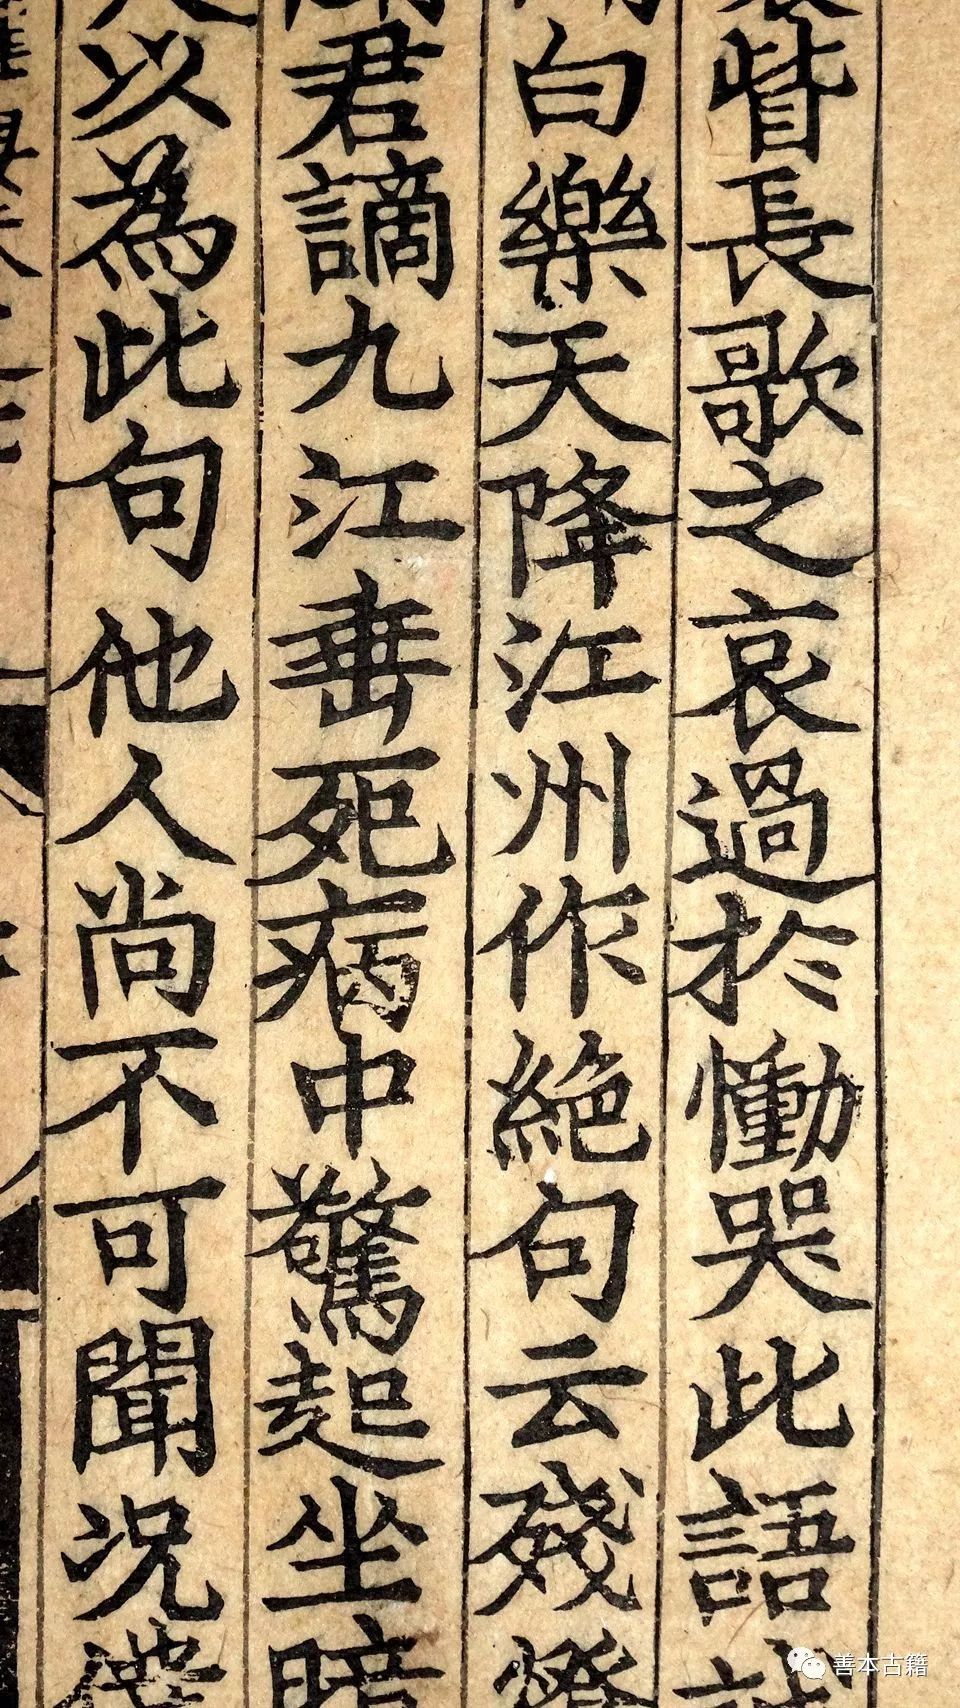 眥長歌之哀過於慟哭此語
白樂天降江州作絶句云殘燈
君謫九江垂死病中驚起坐暗
以為此句他人尚不可聞况
善本古籍